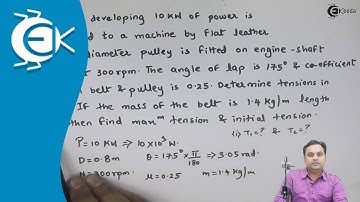 developing 10 KW of power is
to a machine by flat leather
diameter pulley is fitted on engine-shaft
300 rpm. The angle of lap is 175° & co-efficient
belt & pulley is 0.25. Determine tensions in
If the mass of the belt is 1.4 kg/m length
then find maxᵐ tension & initial tension.
(i) T₁=? & T₂=?
P = 10 KW ⇒ 10×10³ W.
D = 0.8m θ = 175°×π/180 ⇒ 3.05 rad.
N = 300 rpm. μ = 0.25 m = 1.4 kg/m
Ekeeda